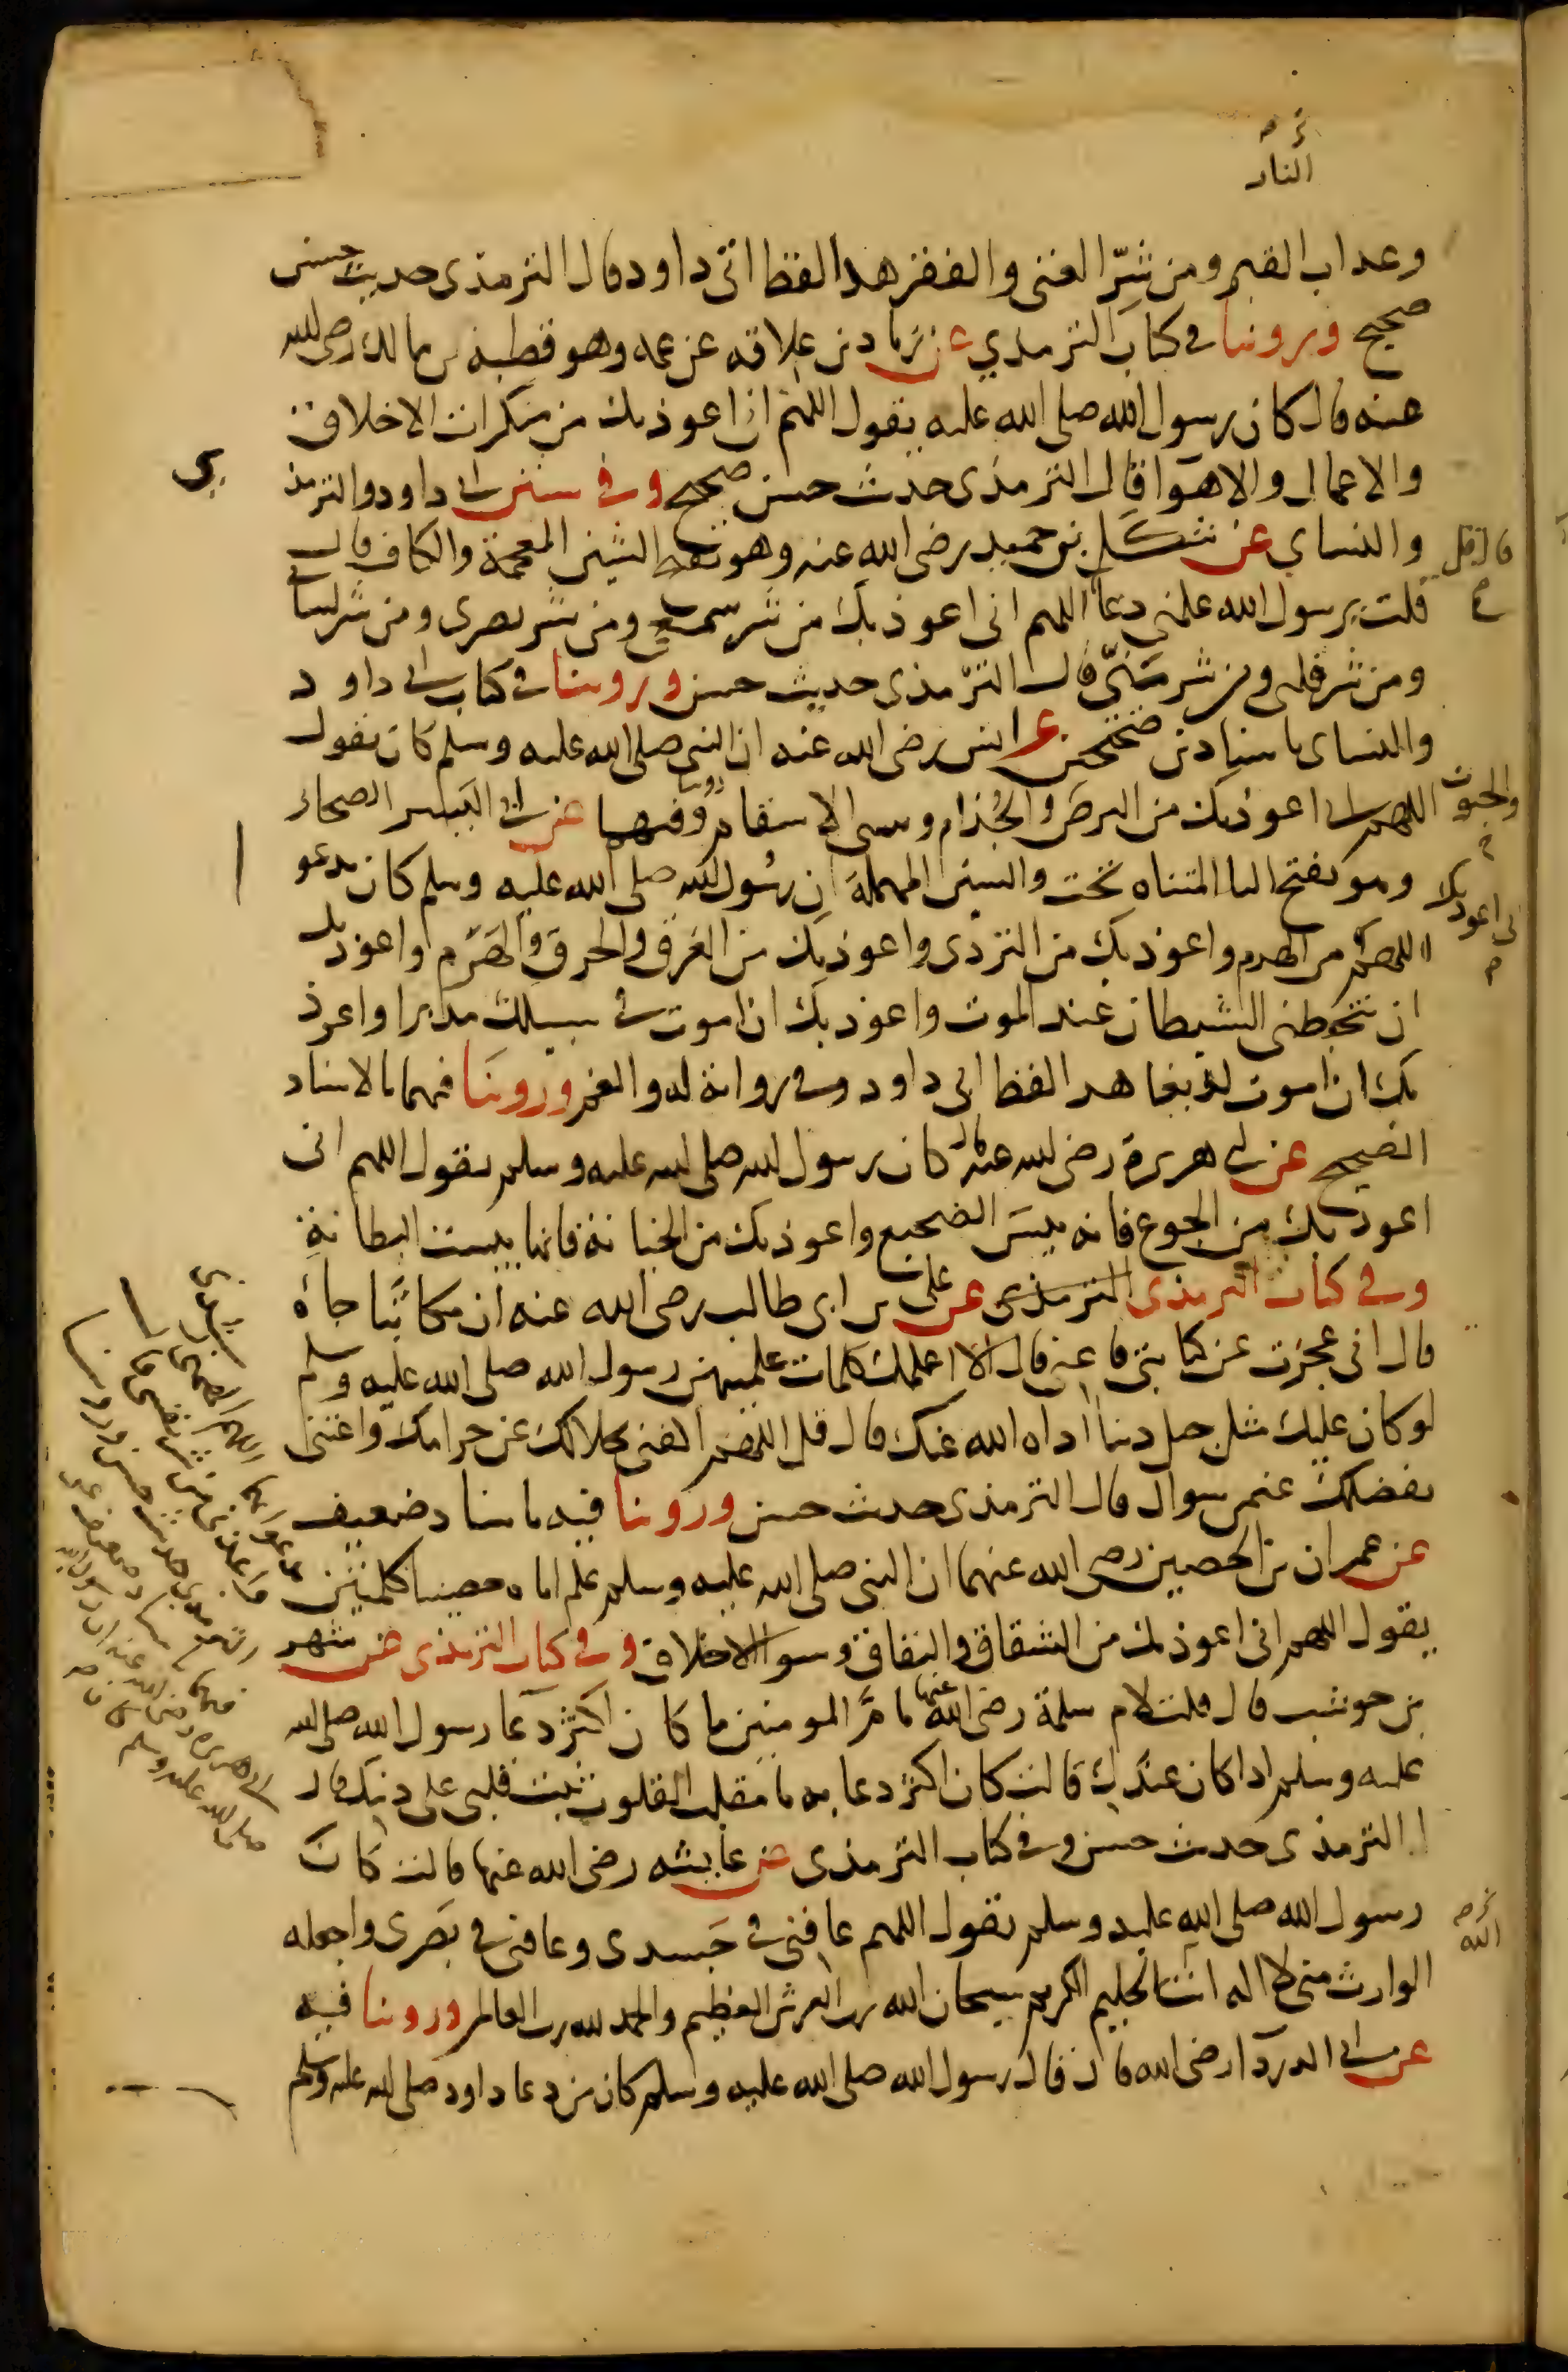 النار
وعذاب القبر ومن شرّ الغنى والفقر هذا لفظ ابى داود قال الترمذى حديث حسن
صحيح وروينا فى كتاب الترمذي عن زياد بن علاقه عن عمه وهو قطبه بن مالك رضى الله
عنه قال كان رسول الله صلى الله عليه يقول اللهم انى اعوذ بك من منكرات الاخلاق
والاعمال والاهوا قال الترمذى حديث حسن صحيح وفى سنن ابى داود والترمذ
ى
والنساى عن شكل بن حميد رضى الله عنه وهو بفتح الشين المعجمة والكاف قال
قال قل
قلت يرسول الله علمنى دعا اللهم انى اعوذ بك من شر سمعى ومن شر بصرى ومن شر لسانى
ومن شر قلبى ومن شر منيّى قال الترمذى حديث حسن وروينا فى كتاب ابى داود
والنساى باسنادين صحيحين عن انس رضى الله عنه ان النبى صلى الله عليه وسلم كان يقول
والجنون
اللهم انى اعوذ بك من البرص والجُذام وسى الاسقام روينا وفيهما عن ابى اليسر الصحابى
وهو بفتح اليا المثناه تحت والسين المهملة ان رسُول الله صلى الله عليه وسلم كان يدعو
انى اعوذ بك
اللهم من الهدم واعوذ بك من التردى واعوذ بك من الغرق والحرق والهَرَم واعوذ بك
ان يتخبطنى الشيطان عند الموت واعوذ بك ان اموت فى سبيلك مدبرا واعوذ
بك ان اموت لديغا هذا لفظ ابى داود وفى رواية له والغم وروينَا فيهما بالاسناد
الصحيح عن ابى هريرة رضى الله عنه قال كان رسول الله صلى الله عليه وسلم يقول اللهم انى
اعوذ بك من الجوع فانه بيسَ الضجيع واعوذ بك من الخيانة فانها بيست البطانةِ
وفى كتاب الترمذى الترمذى عن على بن ابى طالب رضى الله عنه ان مكاتبًا جاهُ
قال انى عجزت عن كتابتى فاعنى قال الا اعلمك كلمات علمنيهن رسول الله صلى الله عليه وسلم
لو كان عليك مثل جبل دينا اداه الله عنك قال قل اللهم اكفنى بحلالك عن حرامك واغننى
بفضلك عمن سواك قال الترمذى حديث حسن وروينا فيه باسناد ضعيف
عن عمران بن الحصين رضى الله عنهما ان النبى صلى الله عليه وسلم علم اباه حصينا كلمتين
يدعو بهما اللهم الهمنى رشدى
واعذنى من شر نفسى قال
الترمذى حديث حسن وروينا
فيهما باسناد ضعيف عن
ابى هريره رضى الله عنه ان رسول الله
صلى الله عليه وسلم كان
يقول اللهم انى اعوذ بك من الشقاق والنفاق وسو الاخلاق وفى كتاب الترمذى عن شهر
بن حوشب قال قلت لام سلمة رضى الله عنها يا مَّ المومنين ما كان اكثر دعا رسول الله صلى الله
عليه وسلم اذا كان عندك قالت كان اكثر دعايه يا مقلب القلوب ثبت قلبى على دينك قال
الترمذى حديث حسن وفى كتاب الترمذى عن عايشه رضى الله عنها قالت كان
رسول الله صلى الله عليه وسلم يقول اللهم عافنى فى جَسدى وعافنى فى بصَرى واجعله
الله
الوارث منى لا اله انت الحليم الكريم سبحان الله رب العرش العظيم والحمد لله رب العالم وروينا فيه
عن ابى الدردآ رضى الله قال قال رسول الله صلى الله عليه وسلم كان من دعا داود صلى الله عليه وسلم